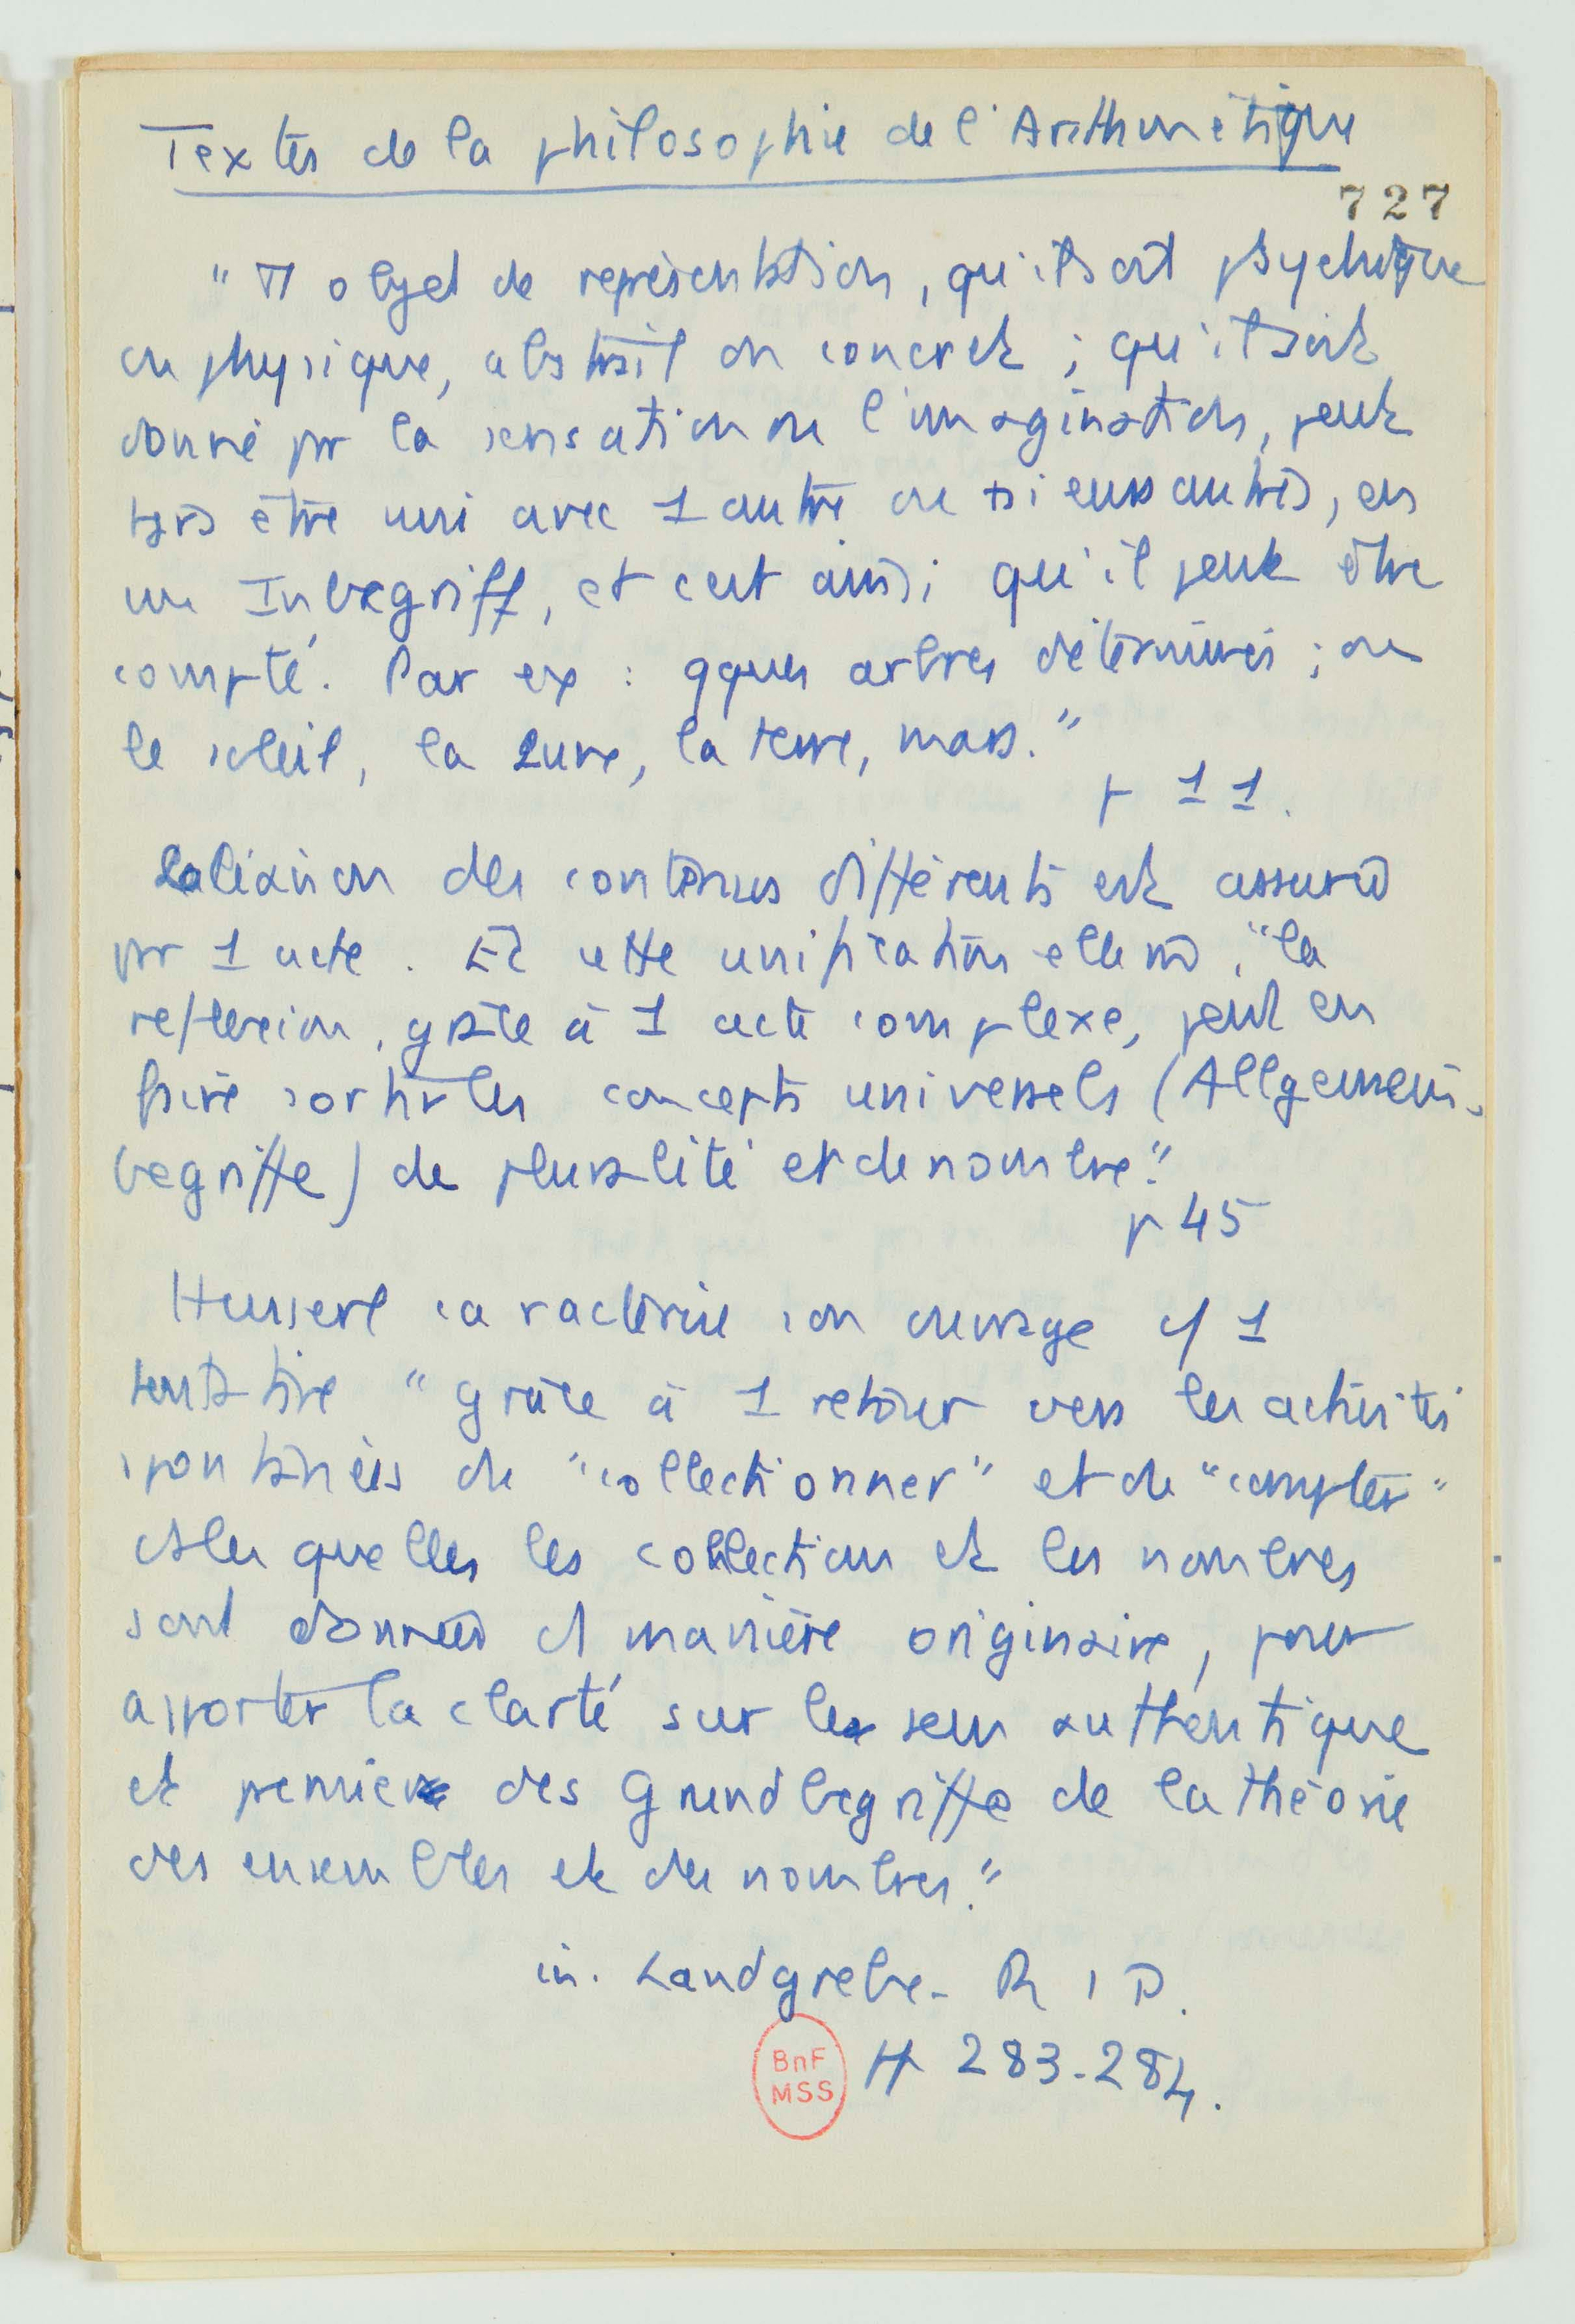 Textes de la philosophie de l'Arithmétique
727
" Tt objet de représentation, qu'il soit psychique
ou physique, abstrait ou concret ; qu'il soit
donné pr la sensation ou l'imagination, peut
tjrs être uni avec 1 autre ou plsieurs autres, en
un Inbegriff, et c'est ainsi qu'il peut être
compté. Par ex : qques arbres déterminés ; ou
le soleil, la Lune, la terre, mars. "
p 11.
La liaison des contenus différents est assurée
pr 1 acte. Et cette unification elle m̂, "la
reflexion, grâce à 1 acte complexe, peut en
faire sortir les concepts universels (Allgemein-
begriffe) de pluralité et de nombre."
p 45
Husserl caractérise son ouvrage c/ 1
tentative " grâce à 1 retour vers les activités
spontanées de "collectionner" et de "compter"
ds lesquelles les collections et les nombres
sont données d/ manière originaire, pour
apporter la clarté sur le sens authentique
et premier des Grundbegriffe de la théorie
des ensembles et des nombres."
in. Landgrebe - R I P.
BnF
MSS
H 283-284.